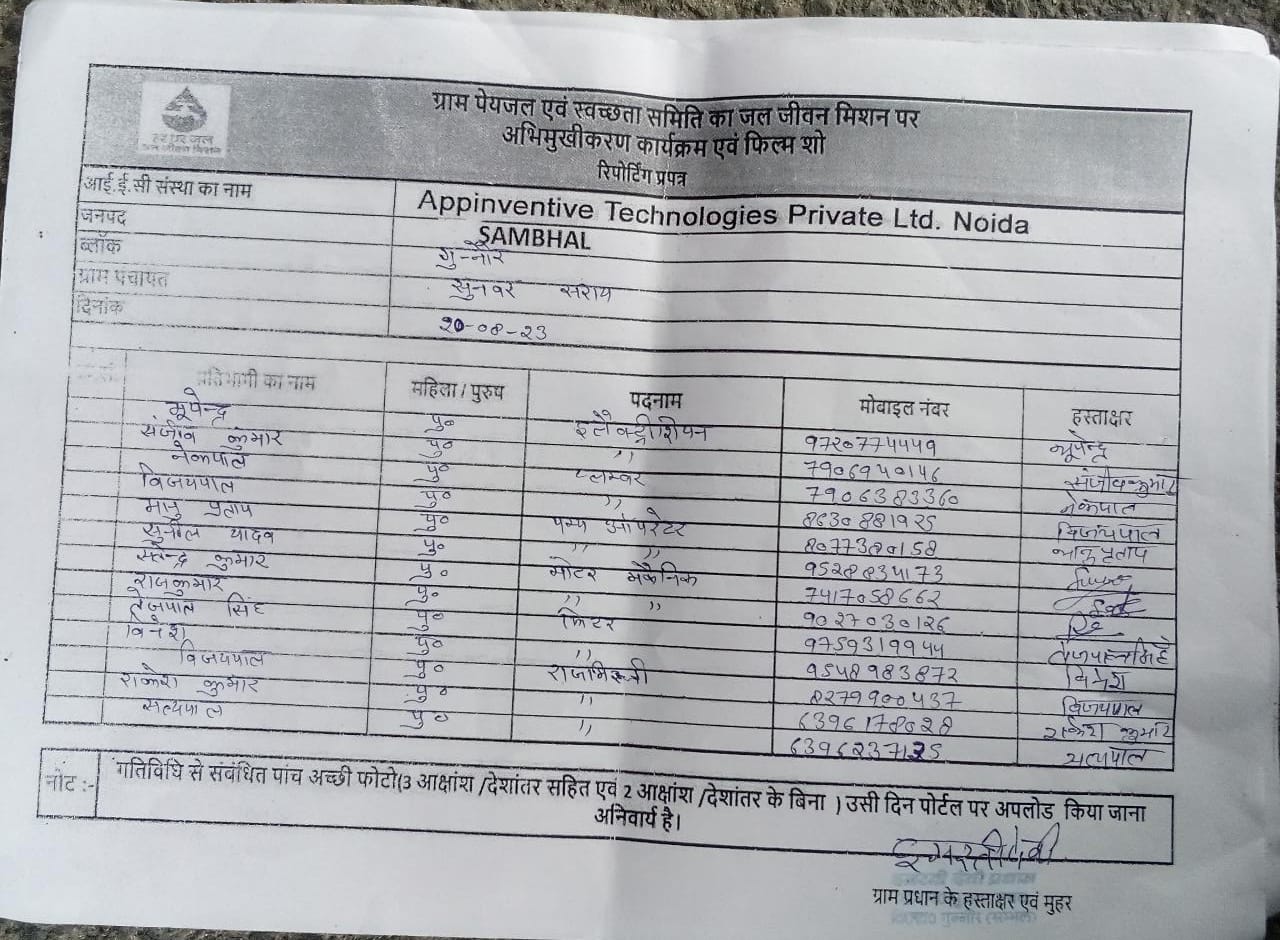 हर घर जल
जल जीवन मिशन
ग्राम पेयजल एवं स्वच्छता समिति का जल जीवन मिशन पर
अभिमुखीकरण कार्यक्रम एवं फिल्म शो
रिपोर्टिंग प्रपत्र
आई.ई.सी संस्था का नाम Appinventive Technologies Private Ltd. Noida
जनपद SAMBHAL
ब्लॉक गुन्नौर
ग्राम पंचायत सुनवर सराय
दिनांक 20-08-23
प्रतिभागी का नाम महिला / पुरुष पदनाम मोबाइल नंबर हस्ताक्षर
भूपेन्द्र पु० इलैक्ट्रीशियन 9720774449 भूपेन्द्र
संजीव कुमार पु० ,, 7906940146 संजीव कुमार
नेकपाल पु० प्लम्बर 7906383360 नेकपाल
विजयपाल पु० ,, 8630881925 विजयपाल
भानु प्रताप पु० पम्प ऑपरेटर 8077380158 भानु प्रताप
सुनील यादव पु० ,, ,, 9528834173
सतेन्द्र कुमार पु० मोटर मकैनिक 7417058662
राजकुमार पु० ,, ,, 9027030126
तेजपाल सिंह पु० फिटर 9759319944 तेजपाल सिंह
विनेश पु० ,, 9548983872 विनेश
विजयपाल पु० राजमिस्त्री 8279900437 विजयपाल
राकेश कुमार पु० ,, 6396178028 राकेश कुमार
सत्यपाल पु० ,, 6396237125 सत्यपाल
नोट :- गतिविधि से संबंधित पांच अच्छी फोटो(3 आक्षांश /देशांतर सहित एवं 2 आक्षांश /देशांतर के बिना ) उसी दिन पोर्टल पर अपलोड किया जाना
अनिवार्य है।
ग्राम प्रधान के हस्ताक्षर एवं मुहर